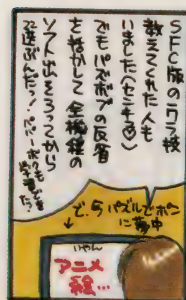 SFC版のウラ技
教えてくれた人も
いました(センキ〜)
でもパズボブの反省
を活かして 全機種の
ソフト出そろってから
選ぶんだっ!
ど、5パズルでポン
に夢中
いやん
アニメ
絵…